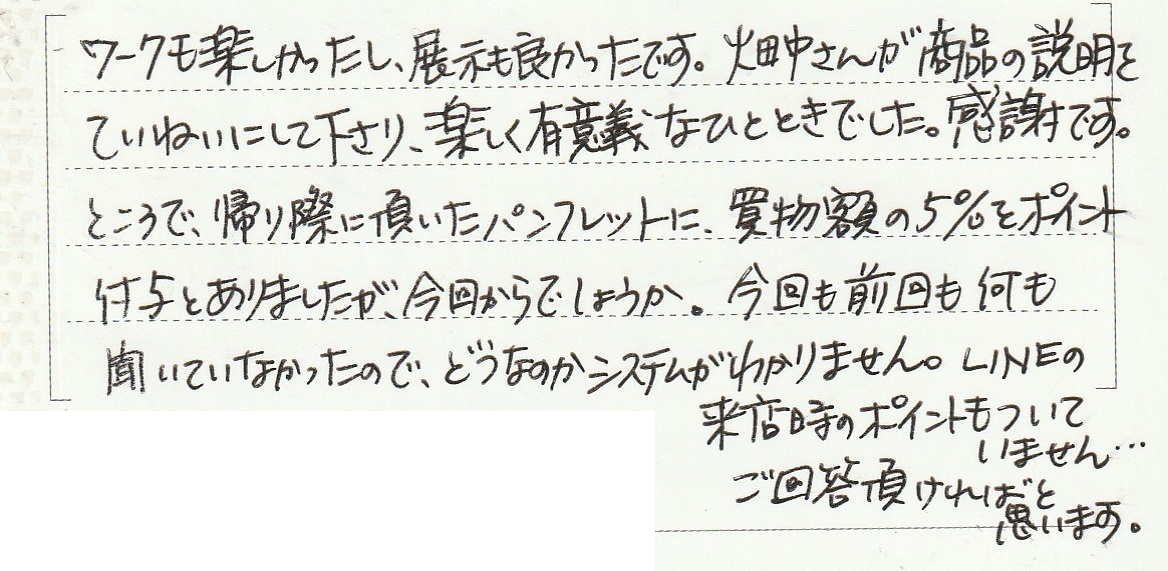 ワークも楽しかったし、展示も良かったです。畑中さんが商品の説明を
ていねいにして下さり、楽しく有意義なひとときでした。感謝です。
ところで、帰り際に頂いたパンフレットに、買物額の5%をポイント
付与とありましたが、今回からでしょうか。今回も前回も何も
聞いていなかったので、どうなのかシステムがわかりません。LINEの
来店時のポイントもついて
いません…
ご回答頂ければと
思います。